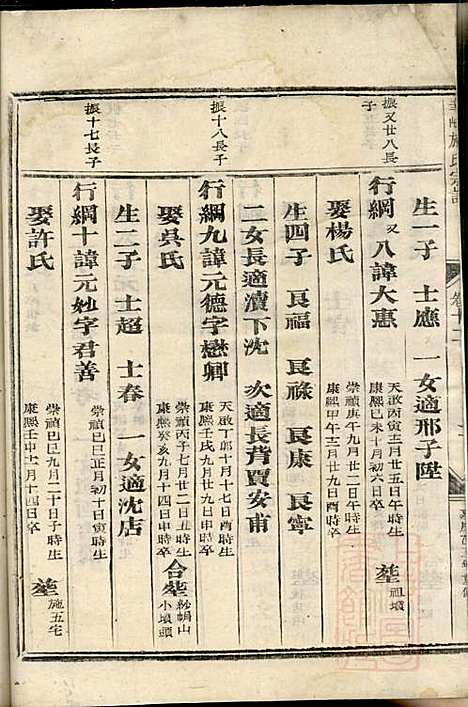 施氏宗譜
卷十二
生一子 士應 一女適邢子陛
振又廿八長子
行綱又八諱大惠
天啟丙寅十二月廿五日午時生
康熙己未十月初六日午時卒
塟祖墳
娶楊氏
崇禎庚午九月廿二日午時生
康熙甲午三月廿九日酉時卒
生四子 良福 良祿 良康 良寧
二女長適瀆下沈 次適長背賈安甫
振十八長子
行綱九諱元德字懋卿
天啟丁卯十月十七日酉時生
康熙壬戌九月廿九日申時卒
娶吳氏
崇禎丙子七月廿二日丑時生
康熙癸亥九月十四日申時卒
合塟紗帽山小墳頭
生二子 士超 士春 一女適沈店
振十七長子
行綱十諱元妙字君善
崇禎己巳正月初十日寅時生
娶許氏
崇禎己巳九月二十日子時生
康熙壬申十一月十四日卒
塟施五宅